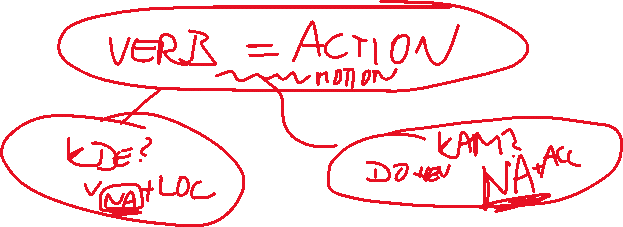 VERB = ACTION
MOTION
KDE?
V NA + LOC
KAM?
DO + GEN NA + ACC